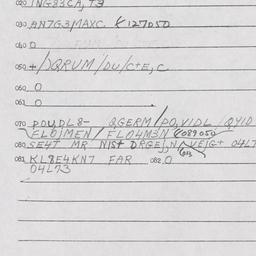 020 ING83CA, T3
030 AN7G3MAXC. £127050
040 0
050 +/)QRUM/DU/C+E,C
060 0
061 0
070 DOUDL8- QGERM/PO,VIDL/QYID
FLOJMEN/FLO4M3N £089050
080 SE4T MR NIST DRGEJ,N VEJG+ 04L7
081 KL8E4KN7 FAR 082 0
04L73